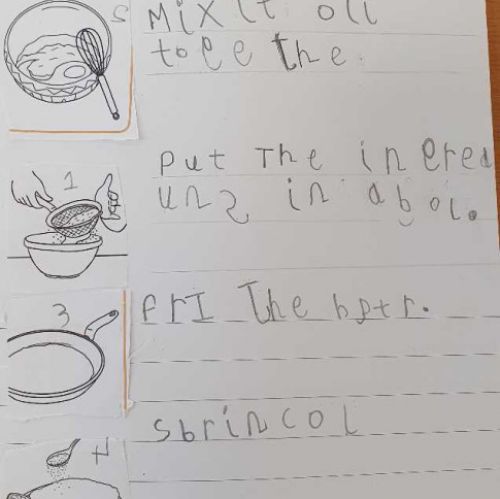 2
Mix it oll
toee the
1
Put The inered
uns in abol.
3
frI The botr.
4
sbrincol